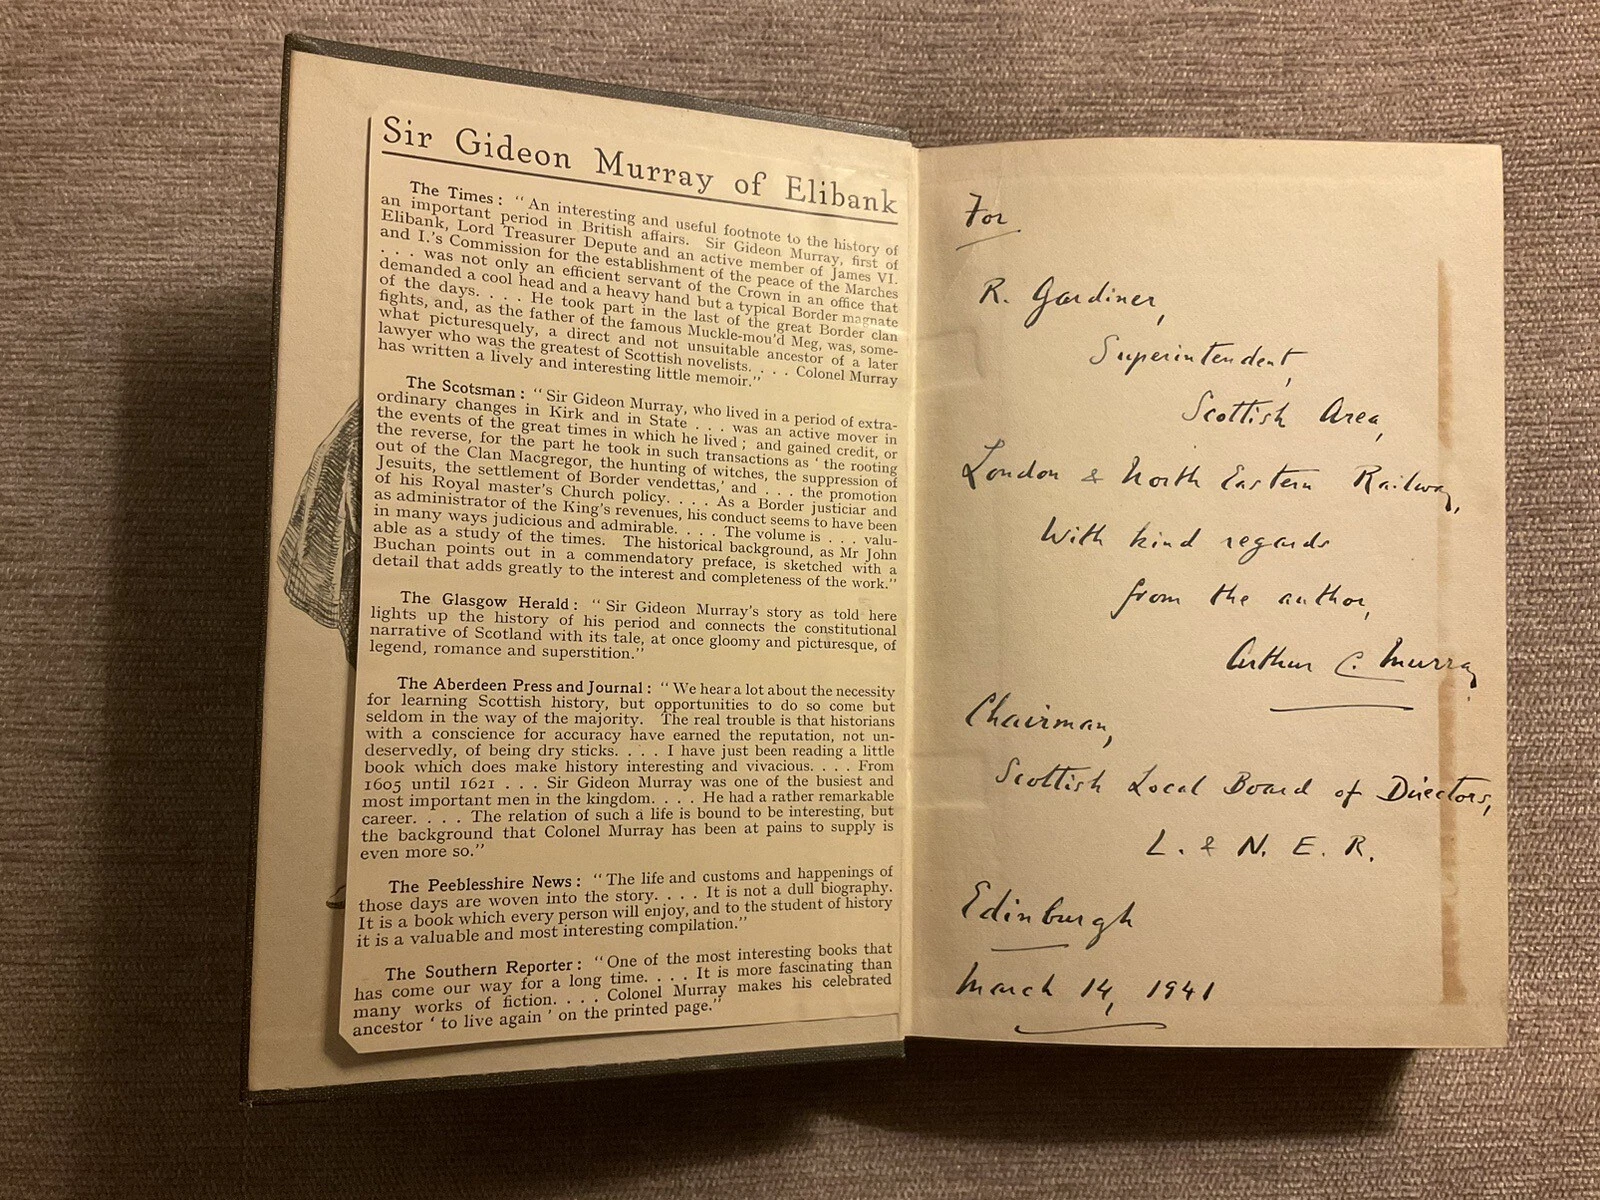 Sir Gideon Murray of Elibank
The Times: "An interesting and useful footnote to the history of
an important period in British affairs. Sir Gideon Murray, first of
Elibank, Lord Treasurer Depute and an active member of James VI.
and I.'s Commission for the establishment of the peace of the Marches
. . . was not only an efficient servant of the Crown in an office that
demanded a cool head and a heavy hand but a typical Border magnate
of the days. . . . He took part in the last of the great Border clan
fights, and, as the father of the famous Muckle-mou'd Meg, was, some-
what picturesquely, a direct and not unsuitable ancestor of a later
lawyer who was the greatest of Scottish novelists. . . . Colonel Murray
has written a lively and interesting little memoir."
The Scotsman: "Sir Gideon Murray, who lived in a period of extra-
ordinary changes in Kirk and in State . . . was an active mover in
the events of the great times in which he lived; and gained credit, or
the reverse, for the part he took in such transactions as 'the rooting
out of the Clan Macgregor, the hunting of witches, the suppression of
Jesuits, the settlement of Border vendettas,' and . . . the promotion
of his Royal master's Church policy. . . . As a Border justiciar and
as administrator of the King's revenues, his conduct seems to have been
in many ways judicious and admirable. . . . The volume is . . . valu-
able as a study of the times. The historical background, as Mr John
Buchan points out in a commendatory preface, is sketched with a
detail that adds greatly to the interest and completeness of the work."
The Glasgow Herald: "Sir Gideon Murray's story as told here
lights up the history of his period and connects the constitutional
narrative of Scotland with its tale, at once gloomy and picturesque, of
legend, romance and superstition."
The Aberdeen Press and Journal: "We hear a lot about the necessity
for learning Scottish history, but opportunities to do so come but
seldom in the way of the majority. The real trouble is that historians
with a conscience for accuracy have earned the reputation, not un-
deservedly, of being dry sticks. . . . I have just been reading a little
book which does make history interesting and vivacious. . . . From
1605 until 1621 . . . Sir Gideon Murray was one of the busiest and
most important men in the kingdom. . . . He had a rather remarkable
career. . . . The relation of such a life is bound to be interesting, but
the background that Colonel Murray has been at pains to supply is
even more so."
The Peeblesshire News: "The life and customs and happenings of
those days are woven into the story. . . . It is not a dull biography.
It is a book which every person will enjoy, and to the student of history
it is a valuable and most interesting compilation."
The Southern Reporter: "One of the most interesting books that
has come our way for a long time. . . . It is more fascinating than
many works of fiction. . . . Colonel Murray makes his celebrated
ancestor 'to live again' on the printed page."
For
R. Gardiner,
Superintendent,
Scottish Area,
London & North Eastern Railway,
With kind regards
from the author,
Arthur C. Murray,
Chairman,
Scottish Local Board of Directors,
L. & N. E. R.
Edinburgh
March 14, 1941